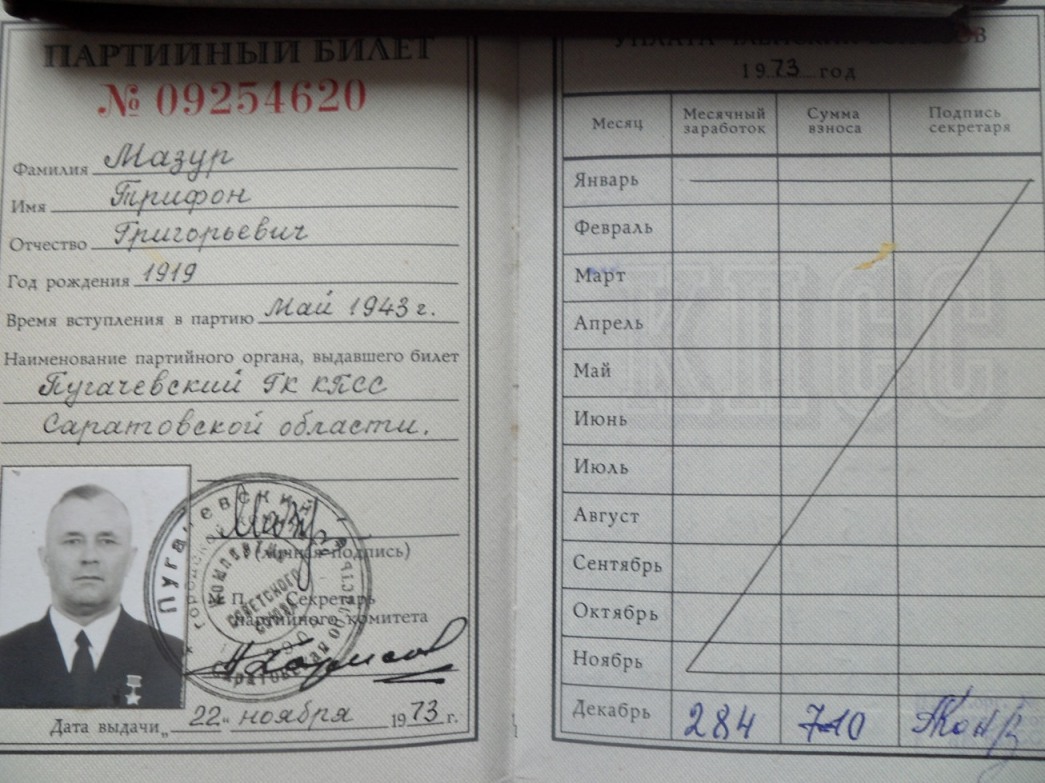 ПАРТИЙНЫЙ БИЛЕТ
№ 09254620
Фамилия Мазур
Имя Трифон
Отчество Григорьевич
Год рождения 1919
Время вступления в партию Май 1943 г.
Наименование партийного органа, выдавшего билет
Пугачевский ГК КПСС
Саратовской области.
(личная подпись)
Секретарь
партийного комитета
Дата выдачи „22“ ноября 1973 г.
1973 год
Месяц Месячный заработок Сумма взноса Подпись секретаря
Январь
Февраль
Март
Апрель
Май
Июнь
Июль
Август
Сентябрь
Октябрь
Ноябрь
Декабрь 284 7-10
КПСС